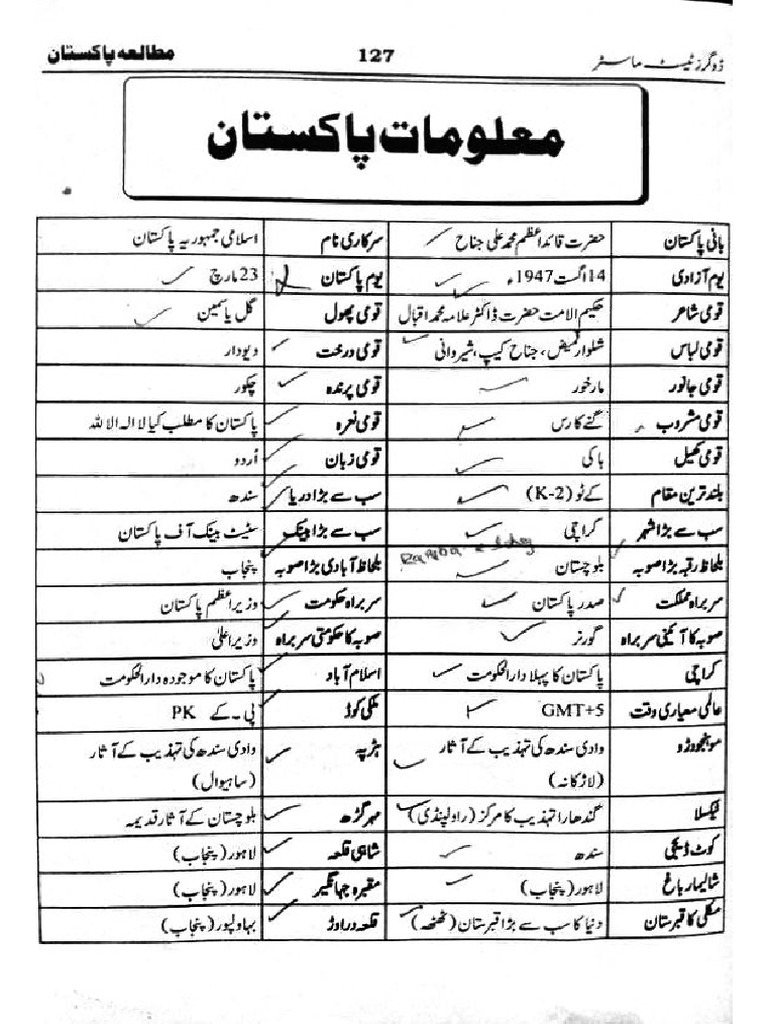 ڈوگرز ٹیسٹ ماسٹر 127 مطالعہ پاکستان
معلومات پاکستان
بانی پاکستان حضرت قائد اعظم محمد علی جناح سرکاری نام اسلامی جمہوریہ پاکستان
یوم آزادی 14 اگست 1947ء یوم پاکستان 23 مارچ
قومی شاعر حکیم الامت حضرت ڈاکٹر علامہ محمد اقبال قومی پھول گل یاسمین
قومی لباس شلوار قمیض، جناح کیپ، شیروانی قومی درخت دیودار
قومی جانور مارخور قومی پرندہ چکور
قومی مشروب گنے کا رس قومی نعرہ پاکستان کا مطلب کیا لا الہ الا اللہ
قومی کھیل ہاکی قومی زبان اُردو
بلند ترین مقام کے ٹو (K-2) سب سے بڑا دریا سندھ
سب سے بڑا شہر کراچی سب سے بڑا بینک سٹیٹ بینک آف پاکستان
بلحاظ رقبہ بڑا صوبہ بلوچستان بلحاظ آبادی بڑا صوبہ پنجاب
سربراہ مملکت صدر پاکستان سربراہ حکومت وزیراعظم پاکستان
صوبہ کا آئینی سربراہ گورنر صوبہ کا حکومتی سربراہ وزیر اعلیٰ
کراچی پاکستان کا پہلا دارالحکومت اسلام آباد پاکستان کا موجودہ دارالحکومت
عالمی معیاری وقت GMT+5 ملکی کوڈ پی۔کے PK
موہنجوداڑو وادی سندھ کی تہذیب کے آثار ہڑپہ وادی سندھ کی تہذیب کے آثار
(لاڑکانہ) (ساہیوال)
ٹیکسلا گندھارا تہذیب کا مرکز (راولپنڈی) مہر گڑھ بلوچستان کے آثار قدیمہ
کوٹ ڈیجی سندھ شاہی قلعہ لاہور (پنجاب)
شالیمار باغ لاہور (پنجاب) مقبرہ جہانگیر لاہور (پنجاب)
مکلی کا قبرستان دنیا کا سب سے بڑا قبرستان (ٹھٹھہ) قلعہ دراوڑ بہاولپور (پنجاب)